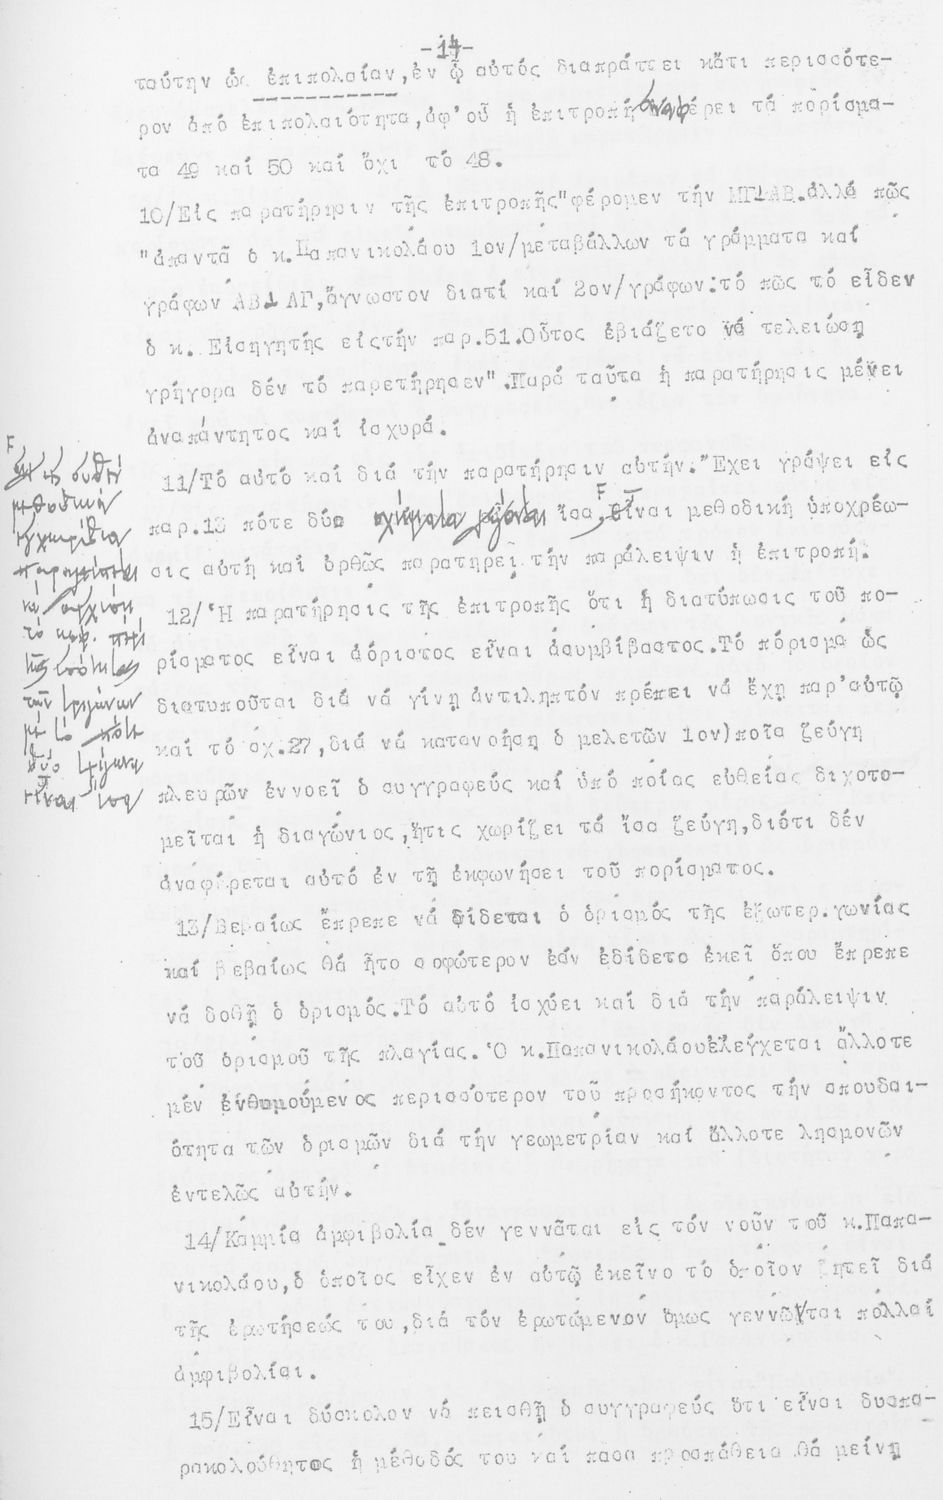 -14-
ταύτην ὡς ἐπιπολαίαν, ἐν ᾧ αὐτός διαπράττει κάτι περισσότε-
ρον ἀπό ἐπιπολαιότητα, ἀφ'οὗ ἡ ἐπιτροπή ἀναφέρει τά πορίσμα-
τα 49 καί 50 καί ὄχι τό 48.
10/Εἰς παρατήρησιν τῆς ἐπιτροπῆς"φέρομεν τήν ΜΤ⊥ΑΒ.ἀλλά πῶς
"ἀπαντᾶ ὁ κ.Παπανικολάου 1ον/μεταβάλλων τά γράμματα καί
γράφων ΑΒ⊥ΑΓ, ἄγνωστον διατί καί 2ον/γράφων:τό πῶς τό εἶδεν
ὁ κ. Εἰσηγητής εἰςτήν παρ.51.Οὗτος ἐβιάζετο νά τελειώσῃ
γρήγορα δέν τό παρετήρησεν".Παρά ταῦτα ἡ παρατήρησις μένει
ἀναπάντητος καί ἰσχυρά.
11/Τό αὐτό καί διά τήν παρατήρησιν αὐτήν."Ἔχει γράψει εἰς
παρ.13 πότε δύο σχήματα λέγονται ἴσα, εἶναι μεθοδική ὑποχρέω-
σις αὐτή καί ὀρθῶς παρατηρεῖ τήν παράλειψιν ἡ ἐπιτροπή.
12/Ἡ παρατήρησις τῆς ἐπιτροπῆς ὅτι ἡ διατύπωσις τοῦ πο-
ρίσματος εἶναι ἀόριστος εἶναι ἀσυμβίβαστος.Τό πόρισμα ὡς
διατυποῦται διά νά γίνῃ ἀντιληπτόν πρέπει νά ἔχῃ παρ'αὐτῷ
καί τό σχ.27, διά νά κατανοήσῃ ὁ μελετῶν 1ον)ποῖα ζεύγη
πλευρῶν ἐννοεῖ ὁ συγγραφεύς καί ὑπό ποίας εὐθείας διχοτο-
μεῖται ἡ διαγώνιος, ἥτις χωρίζει τά ἴσα ζεύγη, διότι δέν
ἀναφέρεται αὐτό ἐν τῇ ἐκφωνήσει τοῦ πορίσματος.
13/Βεβαίως ἔπρεπε νά δίδεται ὁ ὁρισμός τῆς ἐξωτερ.γωνίας
καί βεβαίως θά ἦτο σοφώτερον ἐάν ἐδίδετο ἐκεῖ ὅπου ἔπρεπε
νά δοθῇ ὁ ὁρισμός.Τό αὐτό ἰσχύει καί διά τήν παράλειψιν
τοῦ ὁρισμοῦ τῆς πλαγίας.Ὁ κ.Παπανικολάου ἐλέγχεται ἄλλοτε
μέν ἐνθυμούμενος περισσότερον τοῦ προσήκοντος τήν σπουδαι-
ότητα τῶν ὁρισμῶν διά τήν γεωμετρίαν καί ἄλλοτε λησμονῶν
ἐντελῶς αὐτήν.
14/Καμμία ἀμφιβολία δέν γεννᾶται εἰς τόν νοῦν τοῦ κ.Παπα-
νικολάου, ὁ ὁποῖος εἶχεν ἐν αὐτῷ ἐκεῖνο τό ὁποῖον ζητεῖ διά
τῆς ἐρωτήσεώς του, διά τόν ἐρωτώμενον ὅμως γεννῶνται πολλαί
ἀμφιβολίαι.
15/Εἶναι δύσκολον νά πεισθῇ ὁ συγγραφεύς ὅτι εἶναι δυσπα-
ρακολούθητος ἡ μέθοδός του καί πᾶσα προσπάθεια θά μείνῃ
μεθοδικά
ἐγχειρίδια
τό κεφ. περί
τῆς ἰσότητος
τῶν τριγώνων
μέ τό πότε
δύο τρίγωνα
εἶναι ἴσα